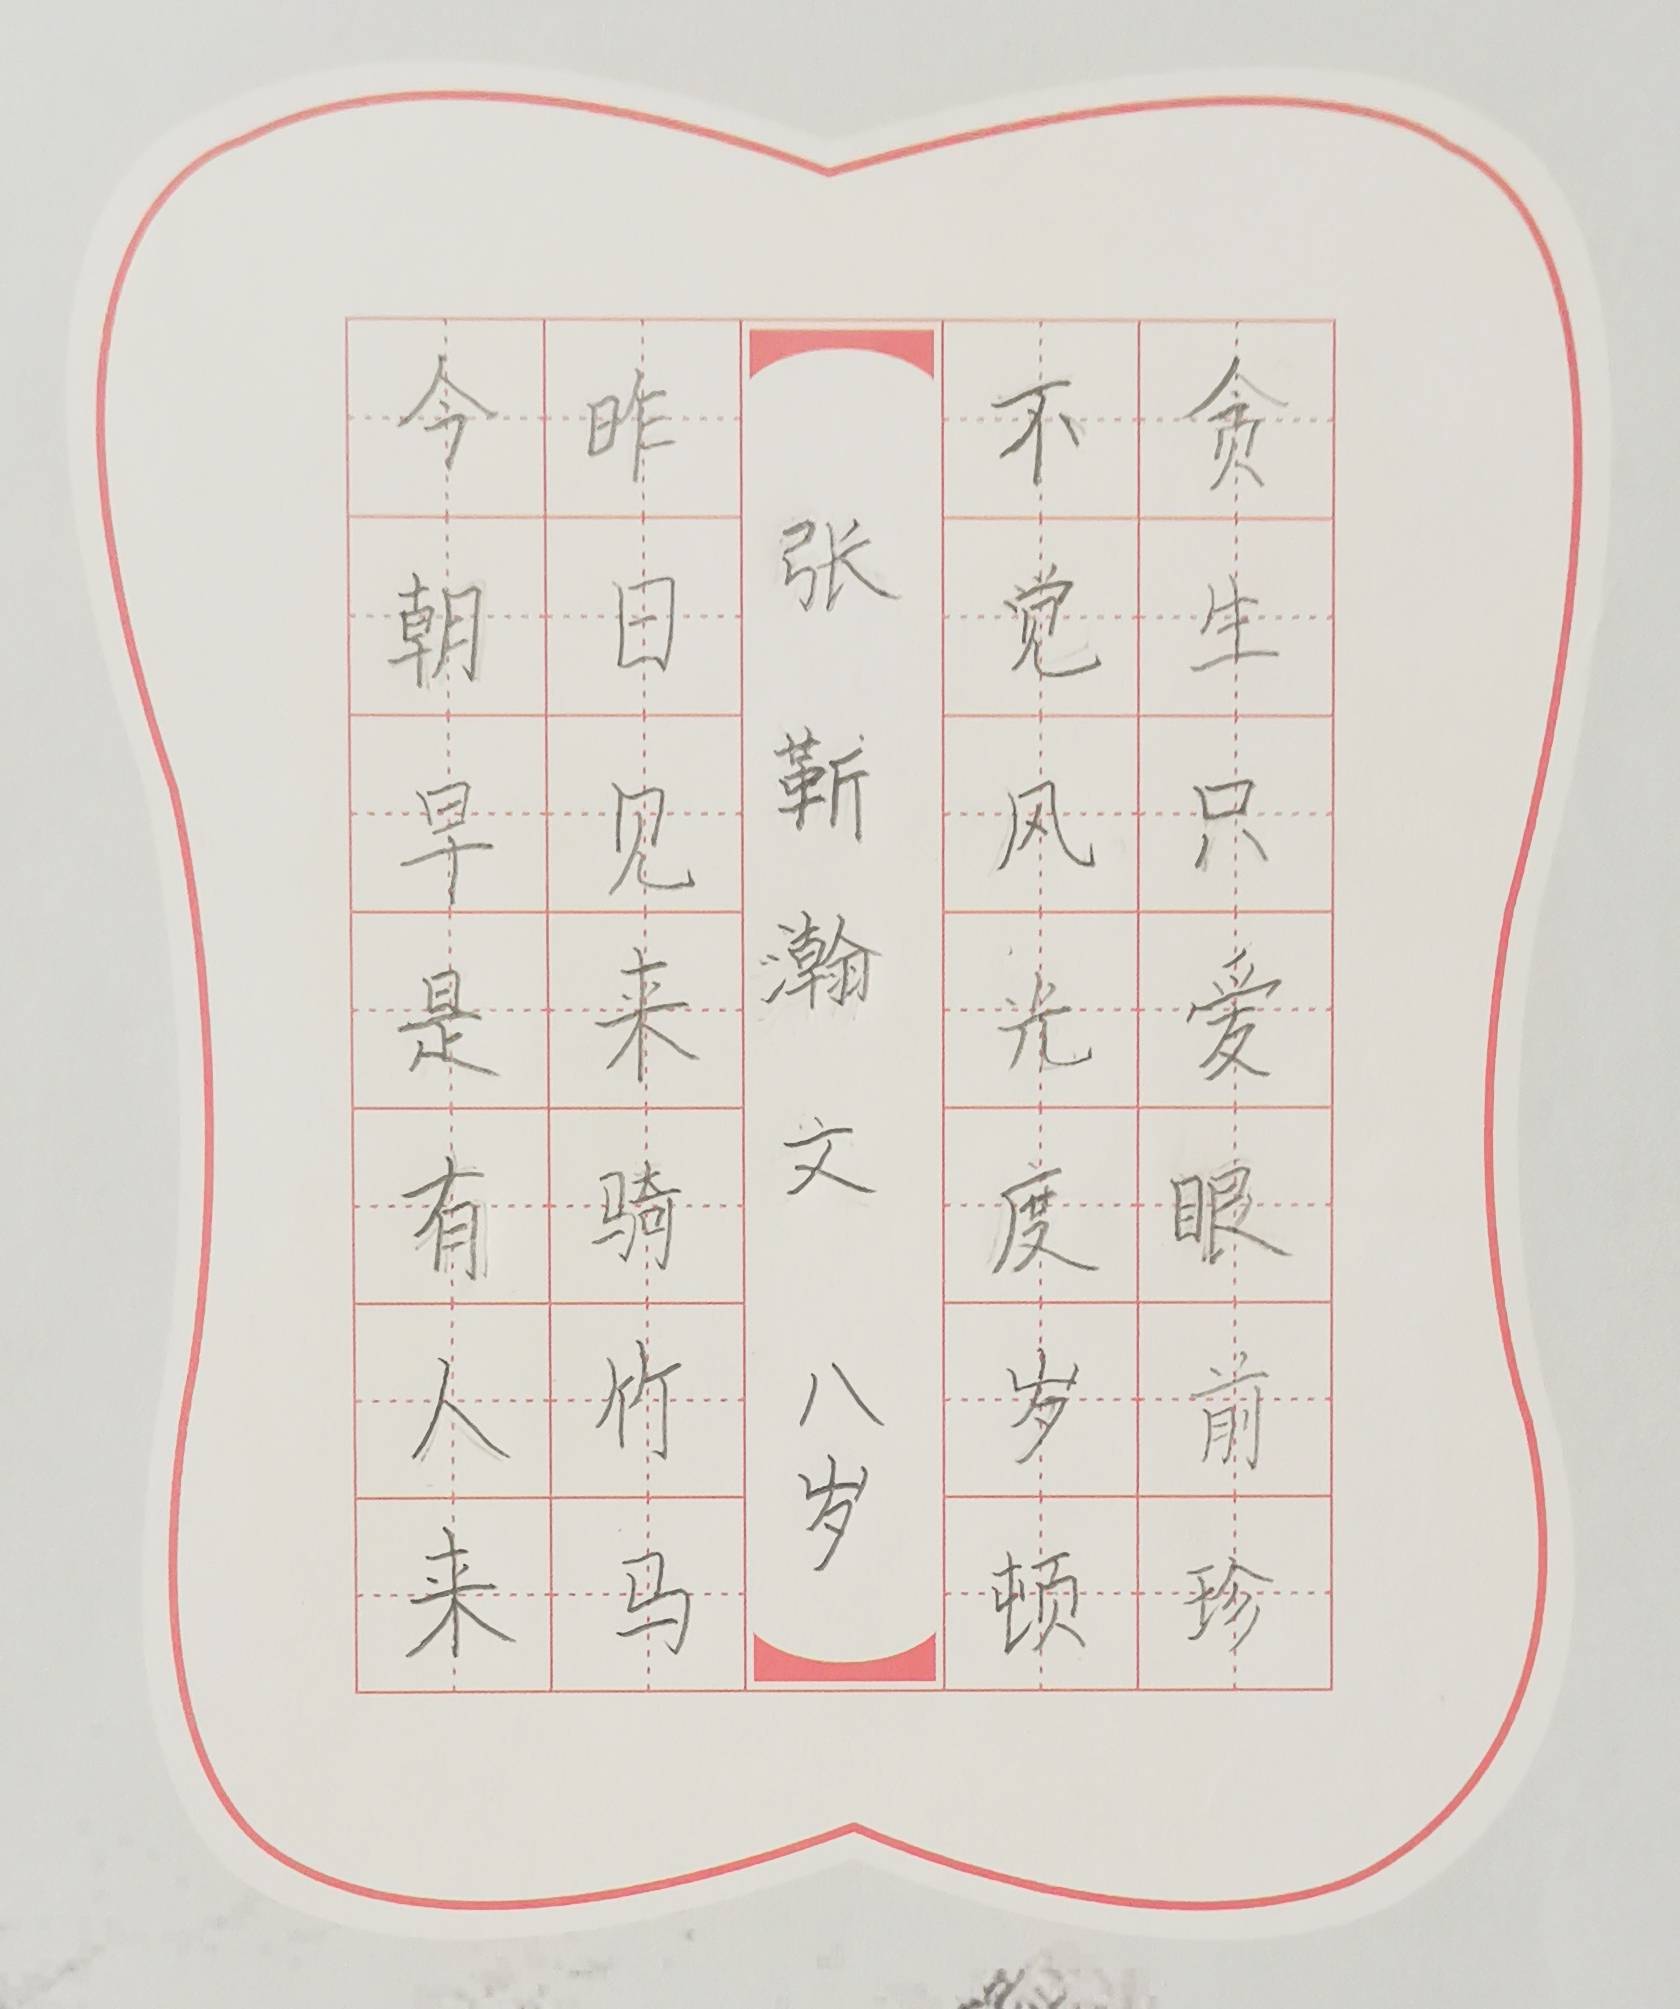 贪生只爱眼前珍
不觉风光度岁顿
张靳瀚文 八岁
昨日见来骑竹马
今朝早是有人来